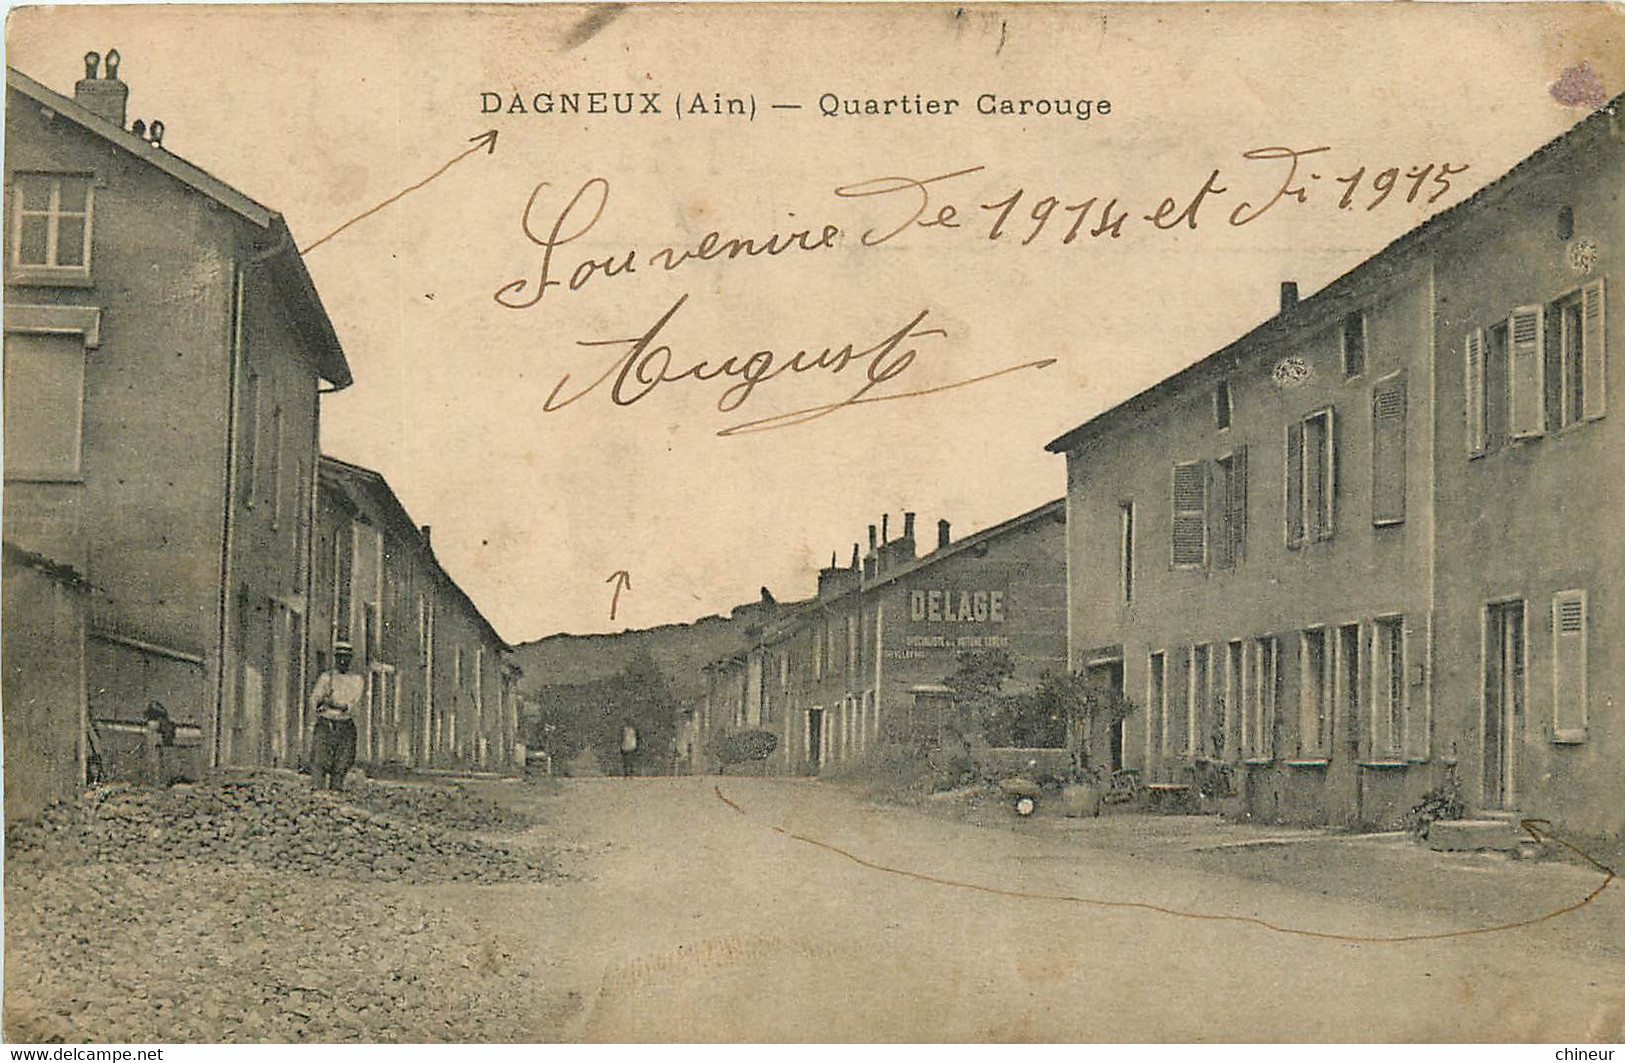 DAGNEUX (Ain) — Quartier Carouge
Souvenire de 1914 et di 1915
August
DELAGE
www.delcampe.net
chineur